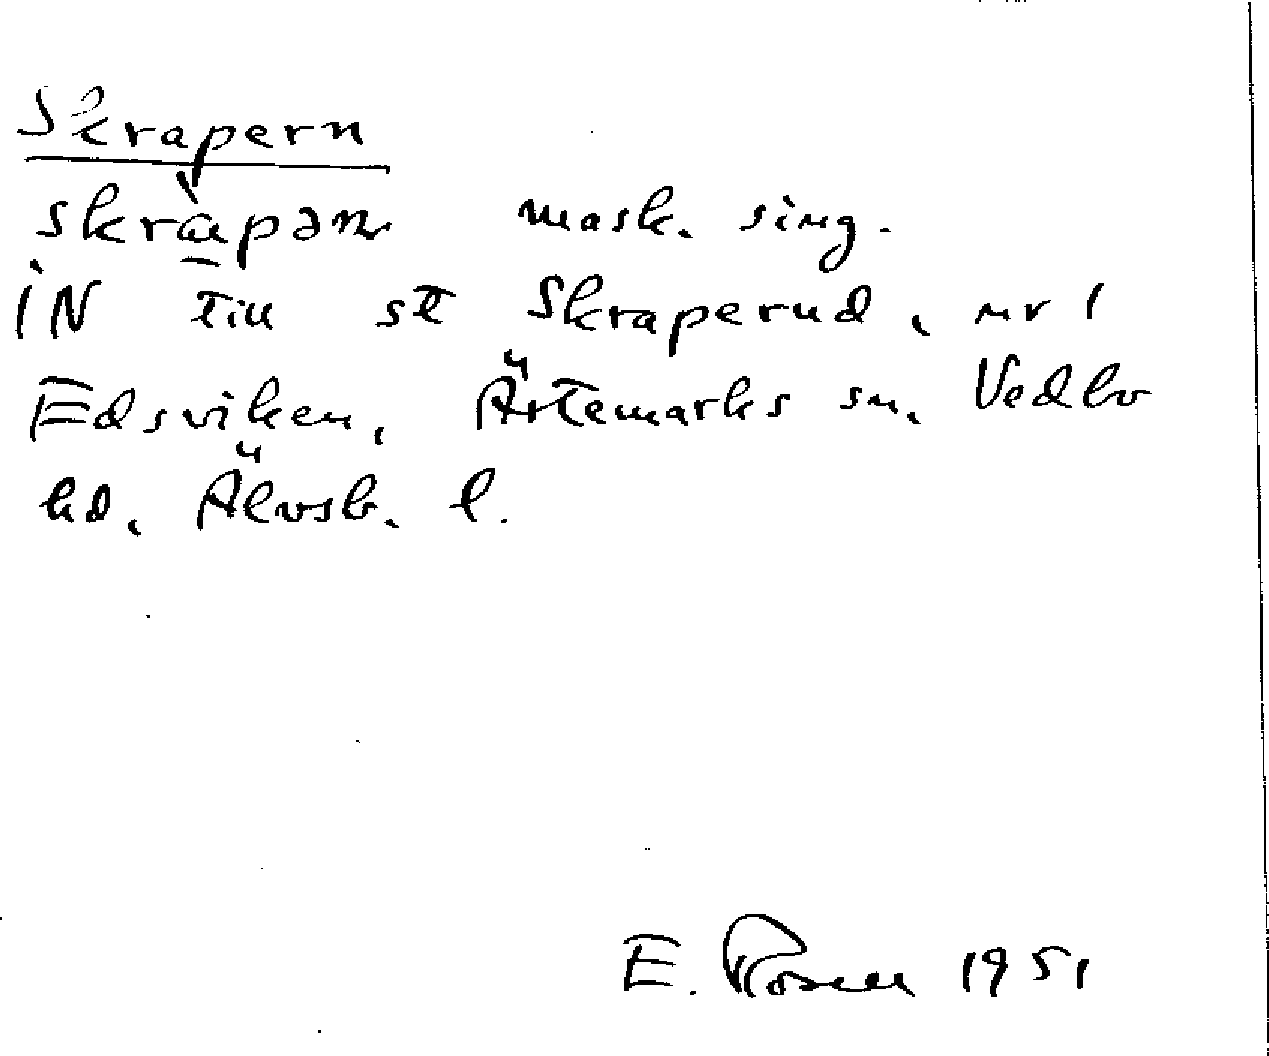 Skrapern
skrapən mask. sing.
IN till st Skraperud, nr 1
Edsviken, Ärtemarks sn, Vedbo
hd, Älvsb. l.
E. Rosell 1951